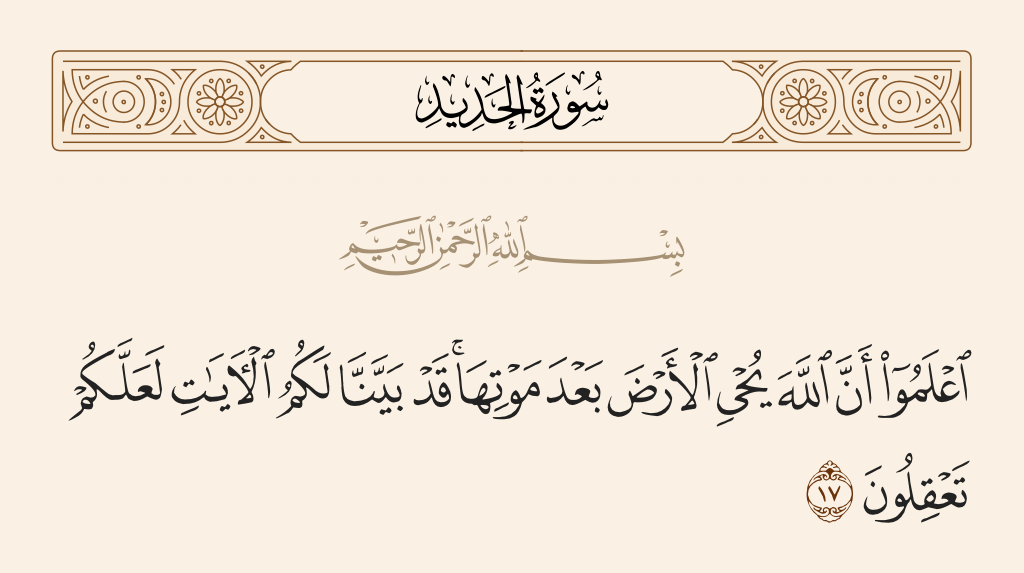 سُورَةُ الحَدِيدِ
بِسْمِ ٱللَّهِ ٱلرَّحْمَٰنِ ٱلرَّحِيمِ
ٱعْلَمُوٓا۟ أَنَّ ٱللَّهَ يُحْىِ ٱلْأَرْضَ بَعْدَ مَوْتِهَا ۚ قَدْ بَيَّنَّا لَكُمُ ٱلْـَٔايَـٰتِ لَعَلَّكُمْ
تَعْقِلُونَ ١٧